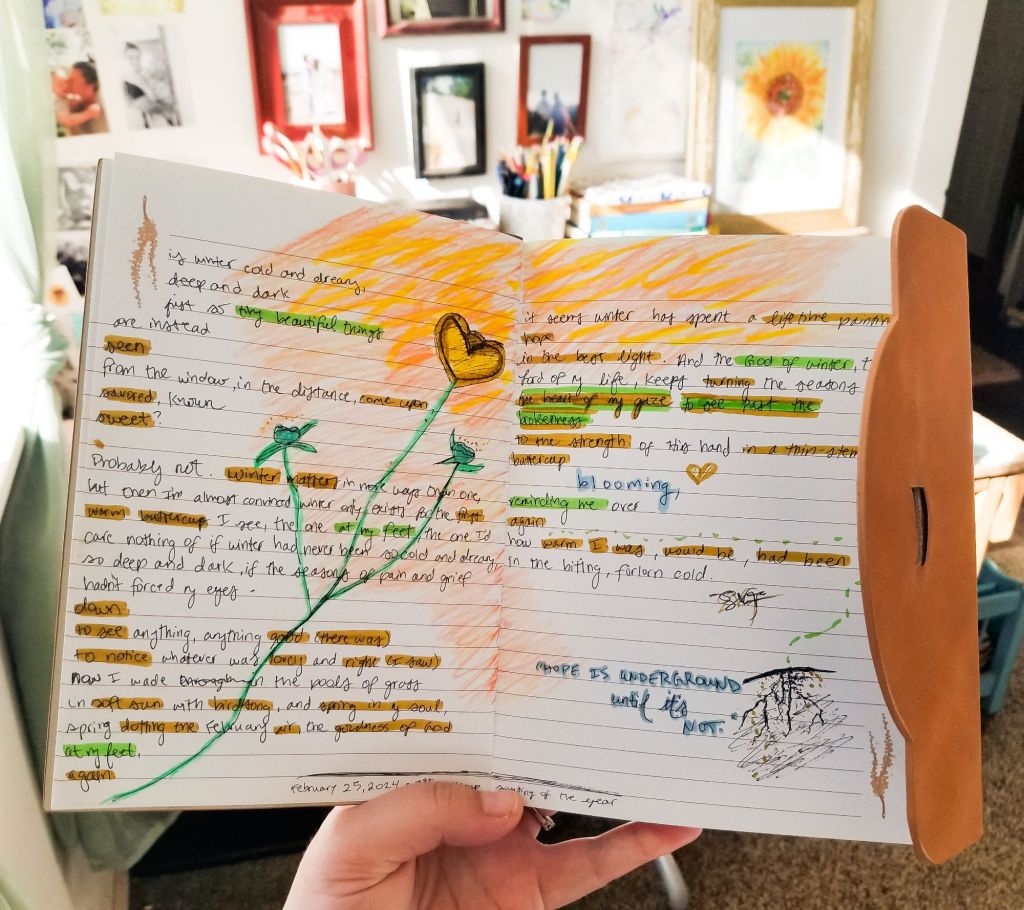 is winter cold and dreary,
deep and dark
just so tiny beautiful things
are instead
seen
from the window, in the distance, come upon
savored, known
sweet?
Probably not. Winter matters in more ways than one,
but then I'm almost convinced winter only exists for the first
warm buttercup I see, the one at my feet, the one I'd
care nothing of if winter had never been so cold and dreary,
so deep and dark, if the seasons of pain and grief
hadn't forced my eyes
down
to see anything, anything good (there was)
to notice whatever was lovely and right (I saw)
now I wade through in the pools of grass
in soft sun with birdsong, and spring in my soul,
spring dotting the February air the goodness of God
at my feet,
again
February 25, 2024 of the year
it seems winter has spent a lifetime paintin
hope
in the best light. And the God of winter, t
Lord of my life, keeps turning the seasons
the heart of my gaze to see past the
brokenness
to the strength of His hand in a thin-stem
buttercup
blooming,
reminding me over
again
how warm I was, would be, had been
in the biting, forlorn cold.
"HOPE IS UNDERGROUND
until it's
NOT."